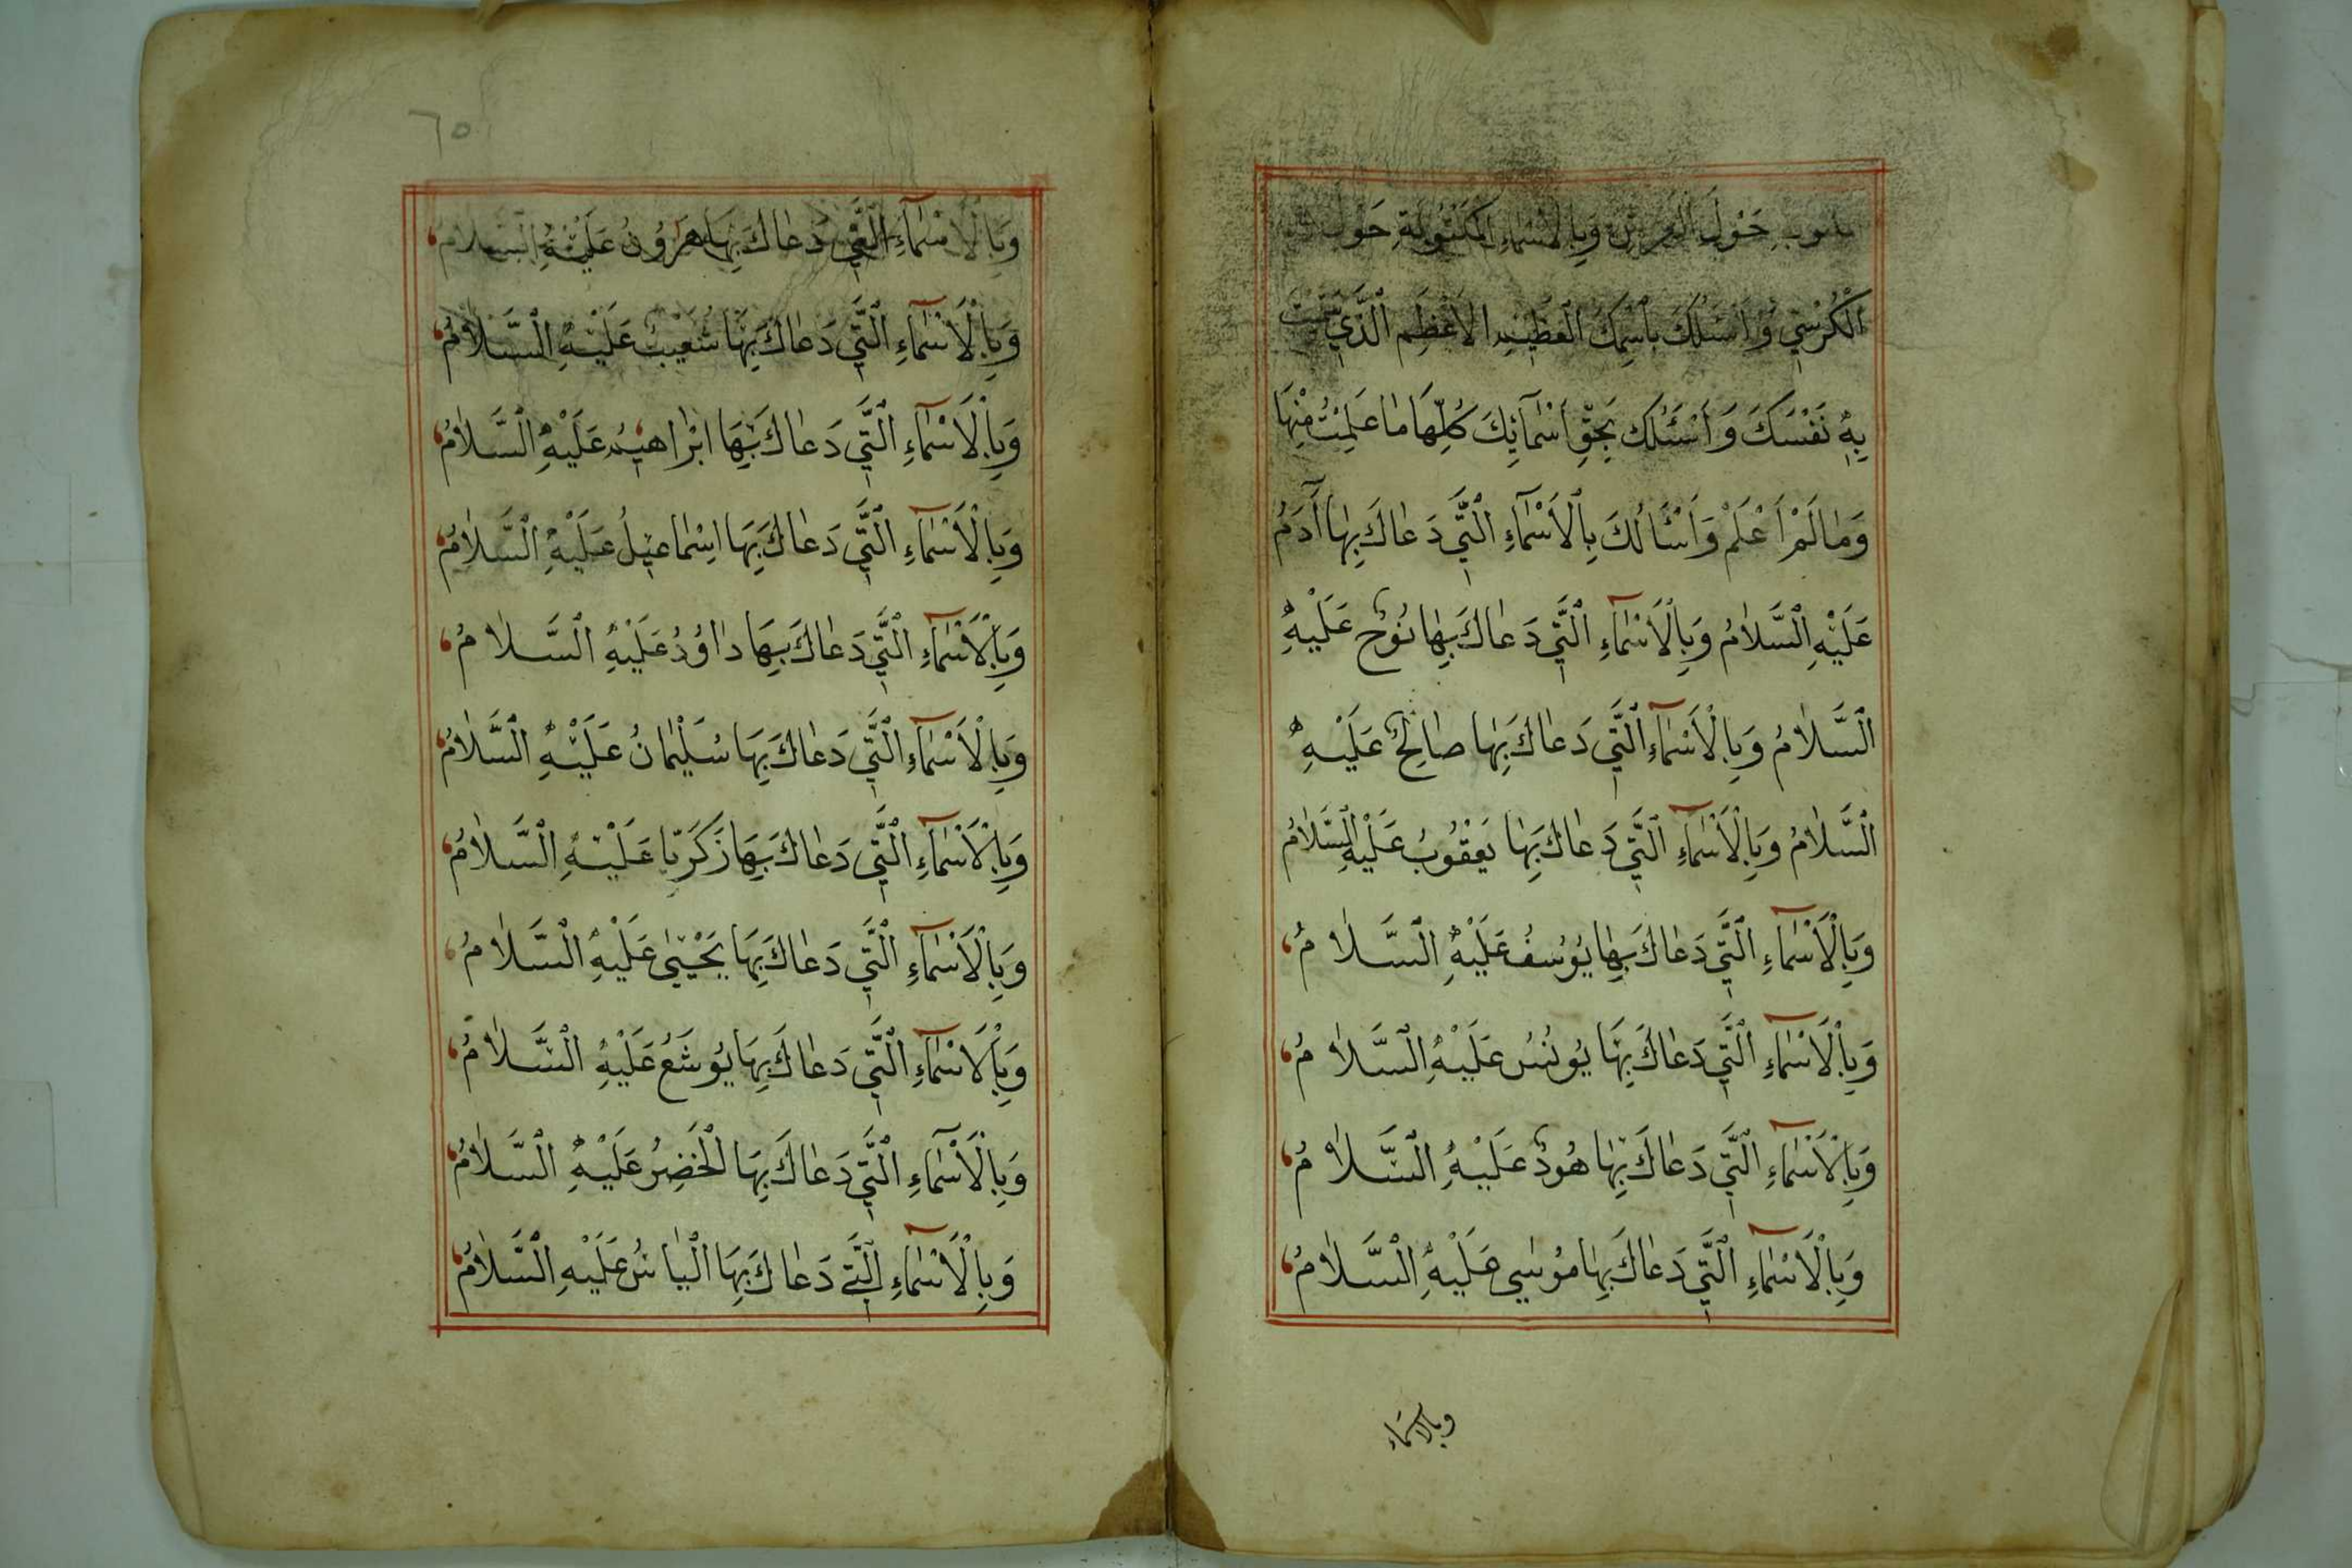 حَوْلَ الْعَرْشِ وَبِالْاَسْمَاءِ الْمَكْتُوبَةِ حَوْلَ
الْكُرْسِيِّ وَاَسْئَلُكَ بِاسْمِكَ الْعَظِيمِ الْاَعْظَمِ الَّذِي سَمَّيْتَ
بِهِ نَفْسَكَ وَ اَسْئَلُكَ بِحَقِّ اَسْمَآئِكَ كُلِّهَا مَا عَلِمْتُ مِنْهَا
وَمَا لَمْ اَعْلَمْ وَاَسْئَالُكَ بِالْاَسْمَآءِ الَّتِي دَعَاكَ بِهَا آدَمُ
عَلَيْهِ السَّلَامُ وَبِالْاَسْمَآءِ الَّتِي دَعَاكَ بِهَا نُوحٌ عَلَيْهِ
السَّلَامُ وَبِالْاَسْمَآءِ الَّتِي دَعَاكَ بِهَا صَالِحٌ عَلَيْهِ
السَّلَامُ وَبِالْاَسْمَآءِ الَّتِي دَعَاكَ بِهَا يَعْقُوبُ عَلَيْهِ السَّلَامُ
وَبِالْاَسْمَآءِ الَّتِي دَعَاكَ بِهَا يُوسُفُ عَلَيْهِ السَّلَامُ
وَبِالْاَسْمَآءِ الَّتِي دَعَاكَ بِهَا يُونُسُ عَلَيْهِ السَّلَامُ
وَبِالْاَسْمَآءِ الَّتِي دَعَاكَ بِهَا هُودٌ عَلَيْهِ السَّلَامُ
وَبِالْاَسْمَآءِ الَّتِي دَعَاكَ بِهَا مُوسٰي عَلَيْهِ السَّلَامُ
وبالاسماء
٦٥
وَبِالْاَسْمَآءِ الَّتِي دَعَاكَ بِهَا هَرُونُ عَلَيْهِ السَّلَامُ
وَبِالْاَسْمَآءِ الَّتِي دَعَاكَ بِهَا شُعَيْبُ عَلَيْهِ السَّلَامُ
وَبِالْاَسْمَآءِ الَّتِي دَعَاكَ بِهَا ابْرَاهِيمُ عَلَيْهِ السَّلَامُ
وَبِالْاَسْمَآءِ الَّتِي دَعَاكَ بِهَا اِسْمَاعِيلُ عَلَيْهِ السَّلَامُ
وَبِالْاَسْمَآءِ الَّتِي دَعَاكَ بِهَا دَاوُدُ عَلَيْهِ السَّلَامُ
وَبِالْاَسْمَآءِ الَّتِي دَعَاكَ بِهَا سُلَيْمَانُ عَلَيْهِ السَّلَامُ
وَبِالْاَسْمَآءِ الَّتِي دَعَاكَ بِهَا زَكَرِيَّا عَلَيْهِ السَّلَامُ
وَبِالْاَسْمَآءِ الَّتِي دَعَاكَ بِهَا يَحْيٰى عَلَيْهِ السَّلَامُ
وَبِالْاَسْمَآءِ الَّتِي دَعَاكَ بِهَا يُوشَعُ عَلَيْهِ السَّلَامُ
وَبِالْاَسْمَآءِ الَّتِي دَعَاكَ بِهَا الْخَضِرُ عَلَيْهِ السَّلَامُ
وَبِالْاَسْمَآءِ الَّتِي دَعَاكَ بِهَا الْيَاسُ عَلَيْهِ السَّلَامُ